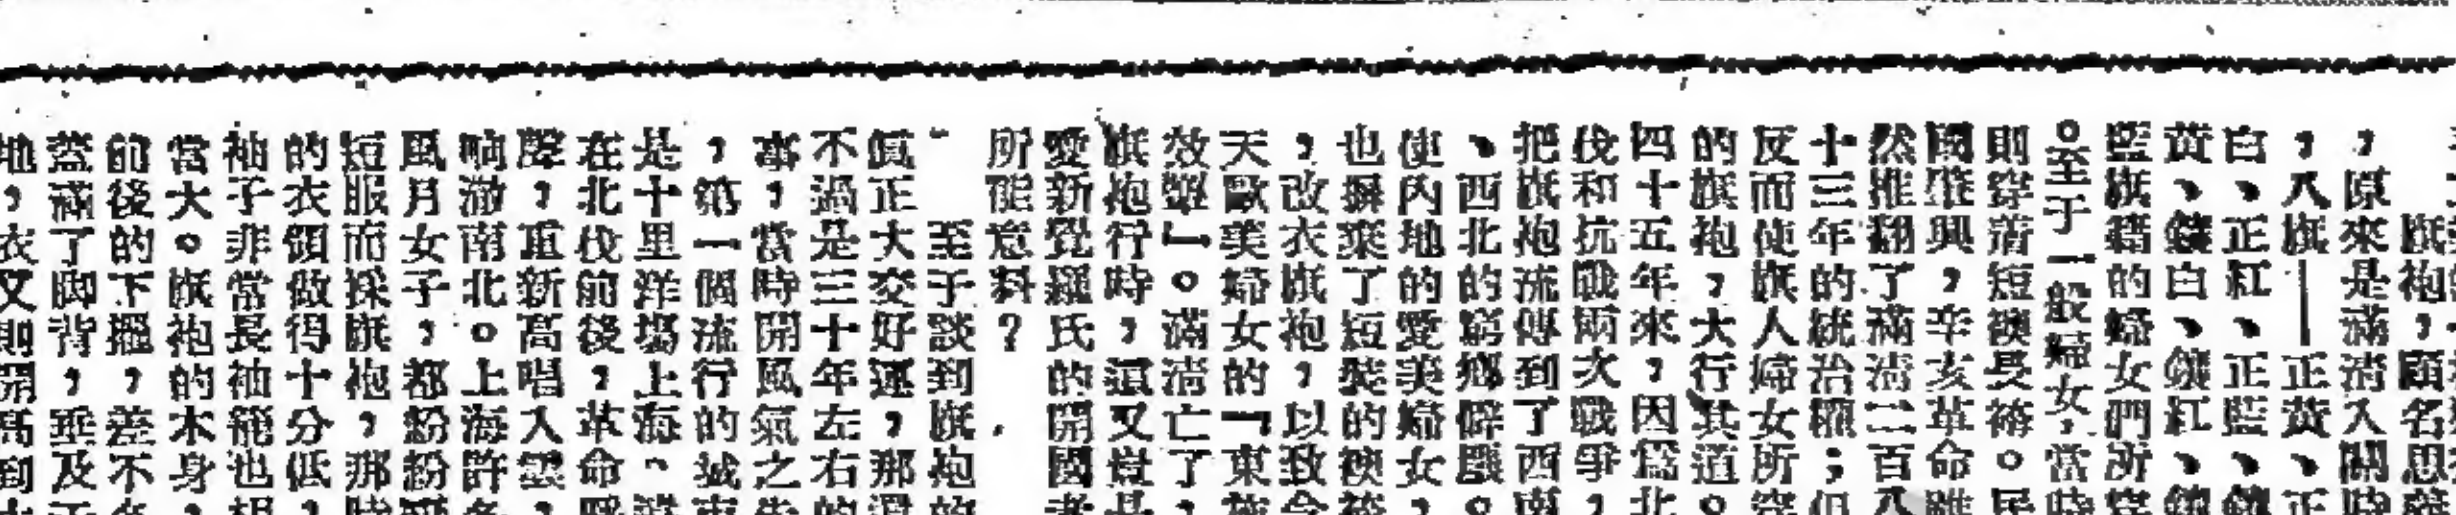 旗袍，顧名思義
，原來是滿清入關時
，八旗——正黃、正
白、正紅、正藍、鑲
黃、鑲白、鑲紅、鑲
藍旗籍的婦女們所穿
。至于一般婦女，當時
則穿着短襖長裙。民
國肇興，辛亥革命雖
然推翻了滿清二百八
十三年的統治權；但
反而使旗人婦女所穿
的旗袍，大行其道。
四十五年來，因爲北
伐和抗戰兩次戰爭，
把旗袍流傳到了西南
、西北的窮鄉僻壤。
使內地的愛美婦女
也摒棄了短裝的襖裙
，改衣旗袍，以致今
天歐美婦女的「東施
效顰」。滿清亡了，
旗袍行時，這又豈是
愛新覺羅氏的開國者
所能意料？
至于談到旗袍的
眞正大交好運，那還
不過是三十年左右的
事，當時開風氣之先
，第一個流行的城市
是十里洋場上海、
在北伐前後，革命
聲，重新高唱入雲，
响澈南北。上海許多
風月女子，都紛紛
短服而採旗袍，那時
的衣領做得十分低，
袖子非常長袖籠也相
當大。旗袍的木身，
前後的下擺，差不多
蓋滿了脚背，垂及于
地，衣叉則開高到